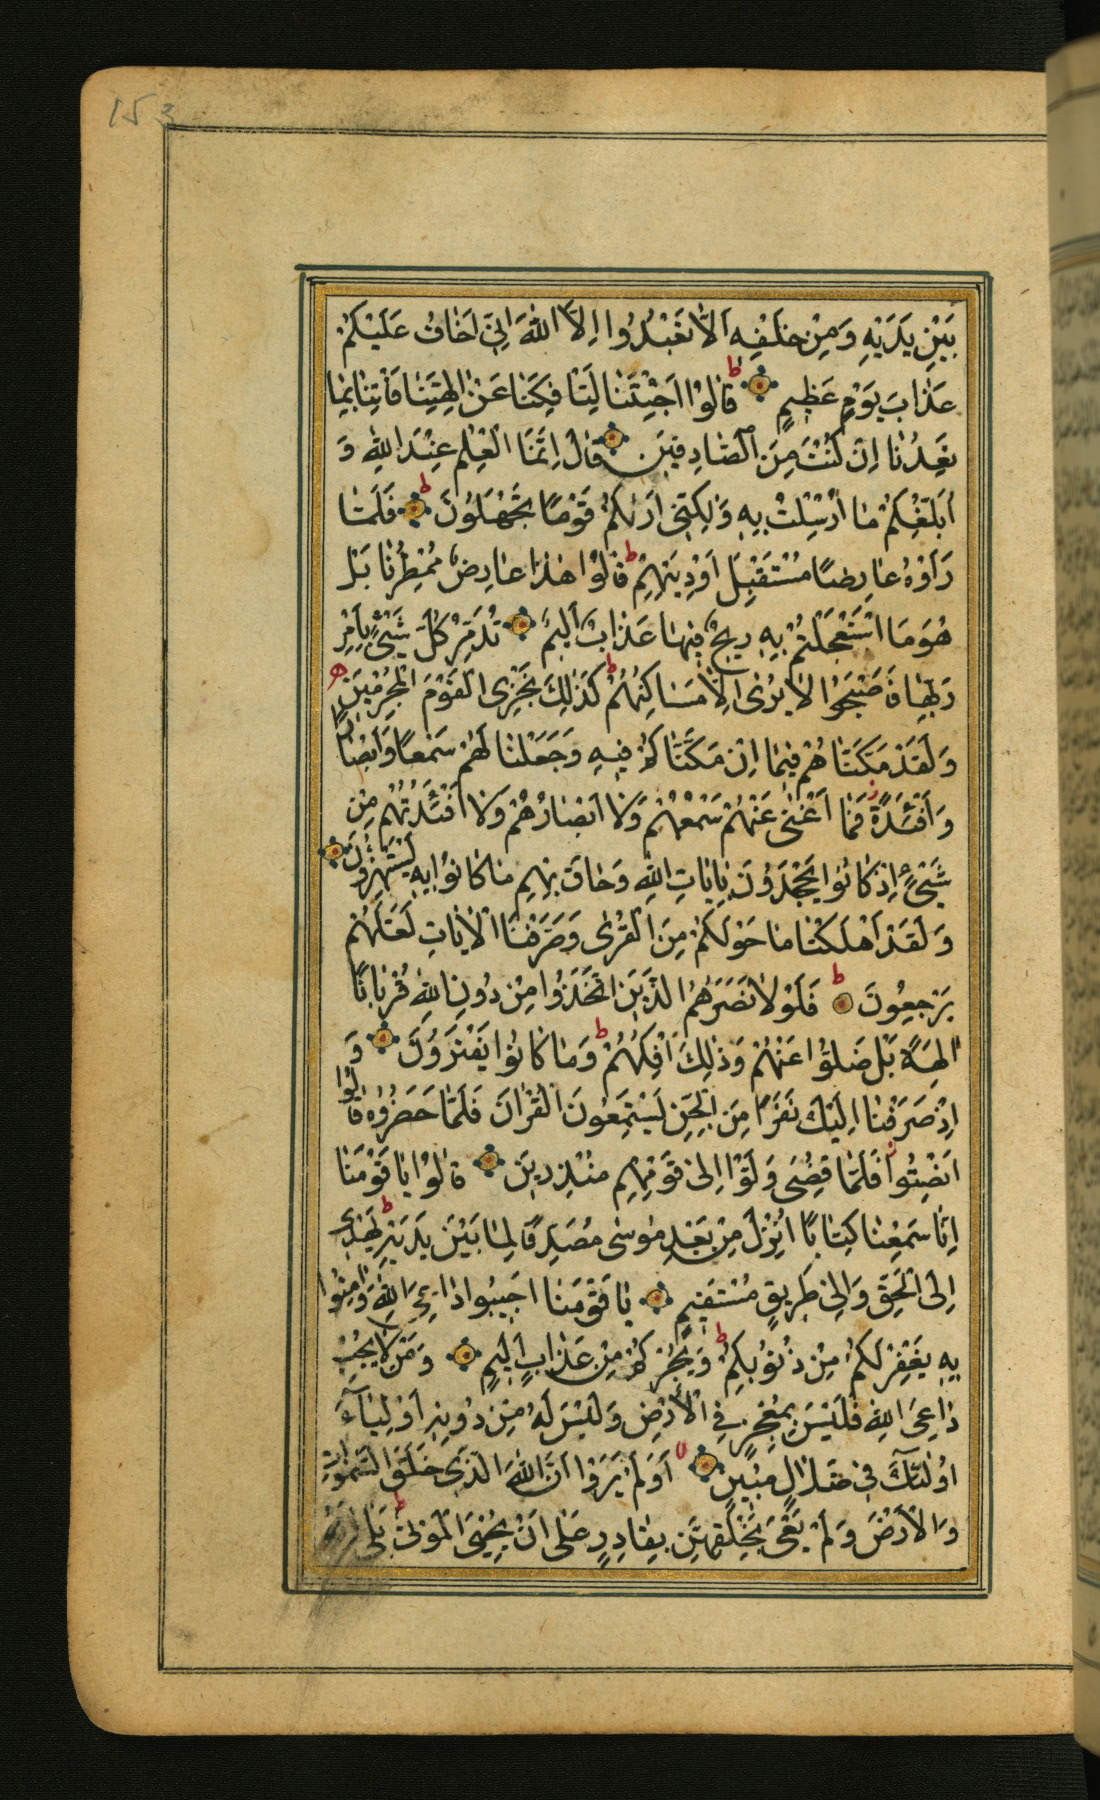 153
بَيْنِ يَدَيْهِ وَمِنْ خَلْفِهِ اَلَّا تَعْبُدُوا اِلَّا اللّٰهَ اِنّٖي اَخَافُ عَلَيْكُمْ
عَذَابَ يَوْمٍ عَظِيمٍ قَالُوا اَجِئْتَنَا لِتَأْفِكَنَا عَنْ اٰلِهَتِنَا فَأْتِنَا بِمَا
تَعِدُنَا اِنْ كُنْتَ مِنَ الصَّادِقِينَ قَالَ اِنَّمَا الْعِلْمُ عِنْدَ اللّٰهِ وَ
اُبَلِّغُكُمْ مَا اُرْسِلْتُ بِهِ وَلٰكِنِّي اَرٰيكُمْ قَوْمًا تَجْهَلُونَ ط فَلَمَّا
رَاَوْهُ عَارِضًا مُسْتَقْبِلَ اَوْدِيَتِهِمْ ط قَالُوا هٰذَا عَارِضٌ مُمْطِرُنَا بَلْ
هُوَ مَا اسْتَعْجَلْتُمْ بِهِ رِيحٌ فِيهَا عَذَابٌ اَلِيمٌ تُدَمِّرُ كُلَّ شَيْءٍ بِاَمْرِ
رَبِّهَا فَاَصْبَحُوا لَا يُرٰى اِلَّا مَسَاكِنُهُمْ ط كَذٰلِكَ نَجْزِي الْقَوْمَ الْمُجْرِمِينَ
وَلَقَدْ مَكَّنَّاهُمْ فِيمَا اِنْ مَكَّنَّاكُمْ فِيهِ وَجَعَلْنَا لَهُمْ سَمْعًا وَاَبْصَارًا
وَاَفْئِدَةً فَمَا اَغْنٰى عَنْهُمْ سَمْعُهُمْ وَلَا اَبْصَارُهُمْ وَلَا اَفْئِدَتُهُمْ مِنْ
شَيْءٍ اِذْ كَانُوا يَجْحَدُونَ بِاٰيَاتِ اللّٰهِ وَحَاقَ بِهِمْ مَا كَانُوا بِهِ يَسْتَهْزِؤُنَ
وَلَقَدْ اَهْلَكْنَا مَا حَوْلَكُمْ مِنَ الْقُرٰى وَصَرَّفْنَا الْاٰيَاتِ لَعَلَّهُمْ
يَرْجِعُونَ ط فَلَوْلَا نَصَرَهُمُ الَّذِينَ اتَّخَذُوا مِنْ دُونِ اللّٰهِ قُرْبَانًا
اٰلِهَةً بَلْ ضَلُّوا عَنْهُمْ وَذٰلِكَ اِفْكُهُمْ ط وَمَا كَانُوا يَفْتَرُونَ وَ
اِذْ صَرَفْنَا اِلَيْكَ نَفَرًا مِنَ الْجِنِّ يَسْتَمِعُونَ الْقُرْاٰنَ فَلَمَّا حَضَرُوهُ قَالُوا
اَنْصِتُوا فَلَمَّا قُضِيَ وَلَّوْا اِلٰى قَوْمِهِمْ مُنْذِرِينَ قَالُوا يَا قَوْمَنَا
اِنَّا سَمِعْنَا كِتَابًا اُنْزِلَ مِنْ بَعْدِ مُوسٰى مُصَدِّقًا لِمَا بَيْنَ يَدَيْهِ ط يَهْدِي
اِلَى الْحَقِّ وَاِلٰى طَرِيقٍ مُسْتَقِيمٍ يَا قَوْمَنَا اَجِيبُوا دَاعِيَ اللّٰهِ وَاٰمِنُوا
بِهِ يَغْفِرْ لَكُمْ مِنْ ذُنُوبِكُمْ ط وَيُجِرْكُمْ مِنْ عَذَابٍ اَلِيمٍ وَمَنْ لَا يُجِبْ
دَاعِيَ اللّٰهِ فَلَيْسَ بِمُعْجِزٍ فِي الْاَرْضِ وَلَيْسَ لَهُ مِنْ دُونِهِ اَوْلِيَآءَ
اُولٰئِكَ فِي ضَلَالٍ مُبِينٍ اَوَلَمْ يَرَوْا اَنَّ اللّٰهَ الَّذِي خَلَقَ السَّمٰوَاتِ
وَالْاَرْضَ وَلَمْ يَعْيَ بِخَلْقِهِنَّ بِقَادِرٍ عَلٰى اَنْ يُحْيِيَ الْمَوْتٰى ط بَلٰى